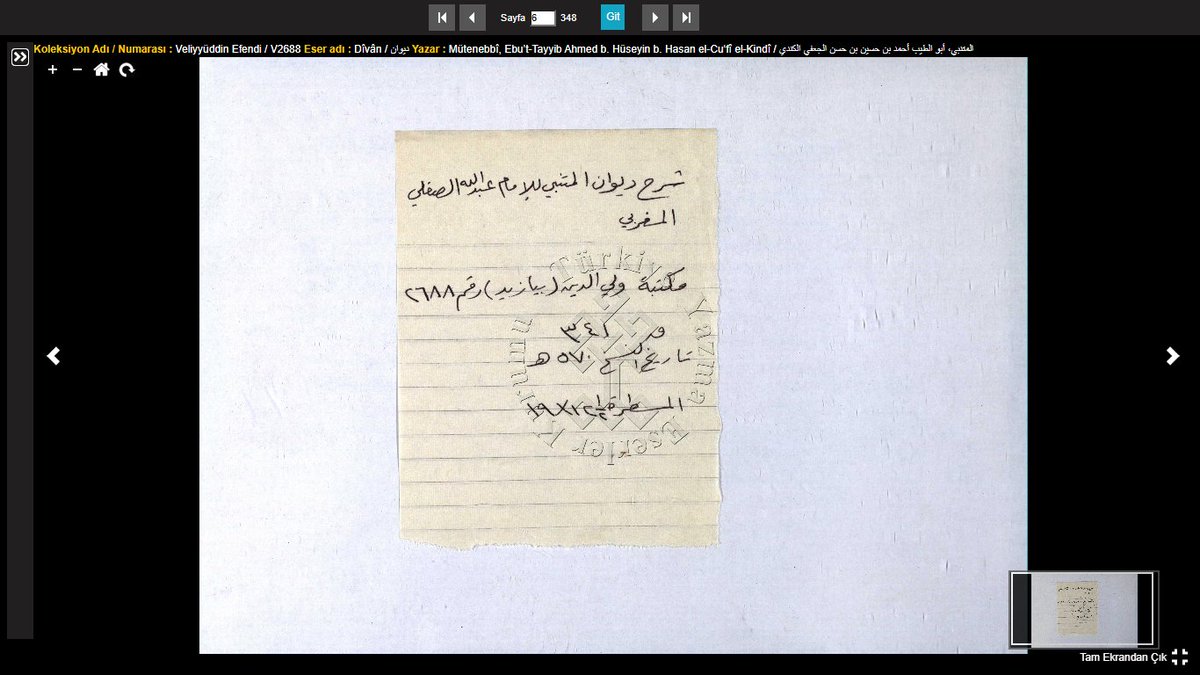 Sayfa 6 348 Git
Koleksiyon Adı / Numarası : Veliyyüddin Efendi / V2688 Eser adı : Dîvân / ديوان Yazar : Mütenebbî, Ebu't-Tayyib Ahmed b. Hüseyin b. Hasan el-Cu'fî el-Kindî / المتنبي، أبو الطيب أحمد بن حسين بن حسن الجعفي الكندي
شرح ديوان المتنبي للإمام عبد الله الصقلي
المغربي
مكتبة ولي الدين (بيازيد) رقم ٢٦٨٨
تاريخ النسخ ٥٧٠ هـ
المسطرة
Türkiye Yazma Eserler
Tam Ekrandan Çık